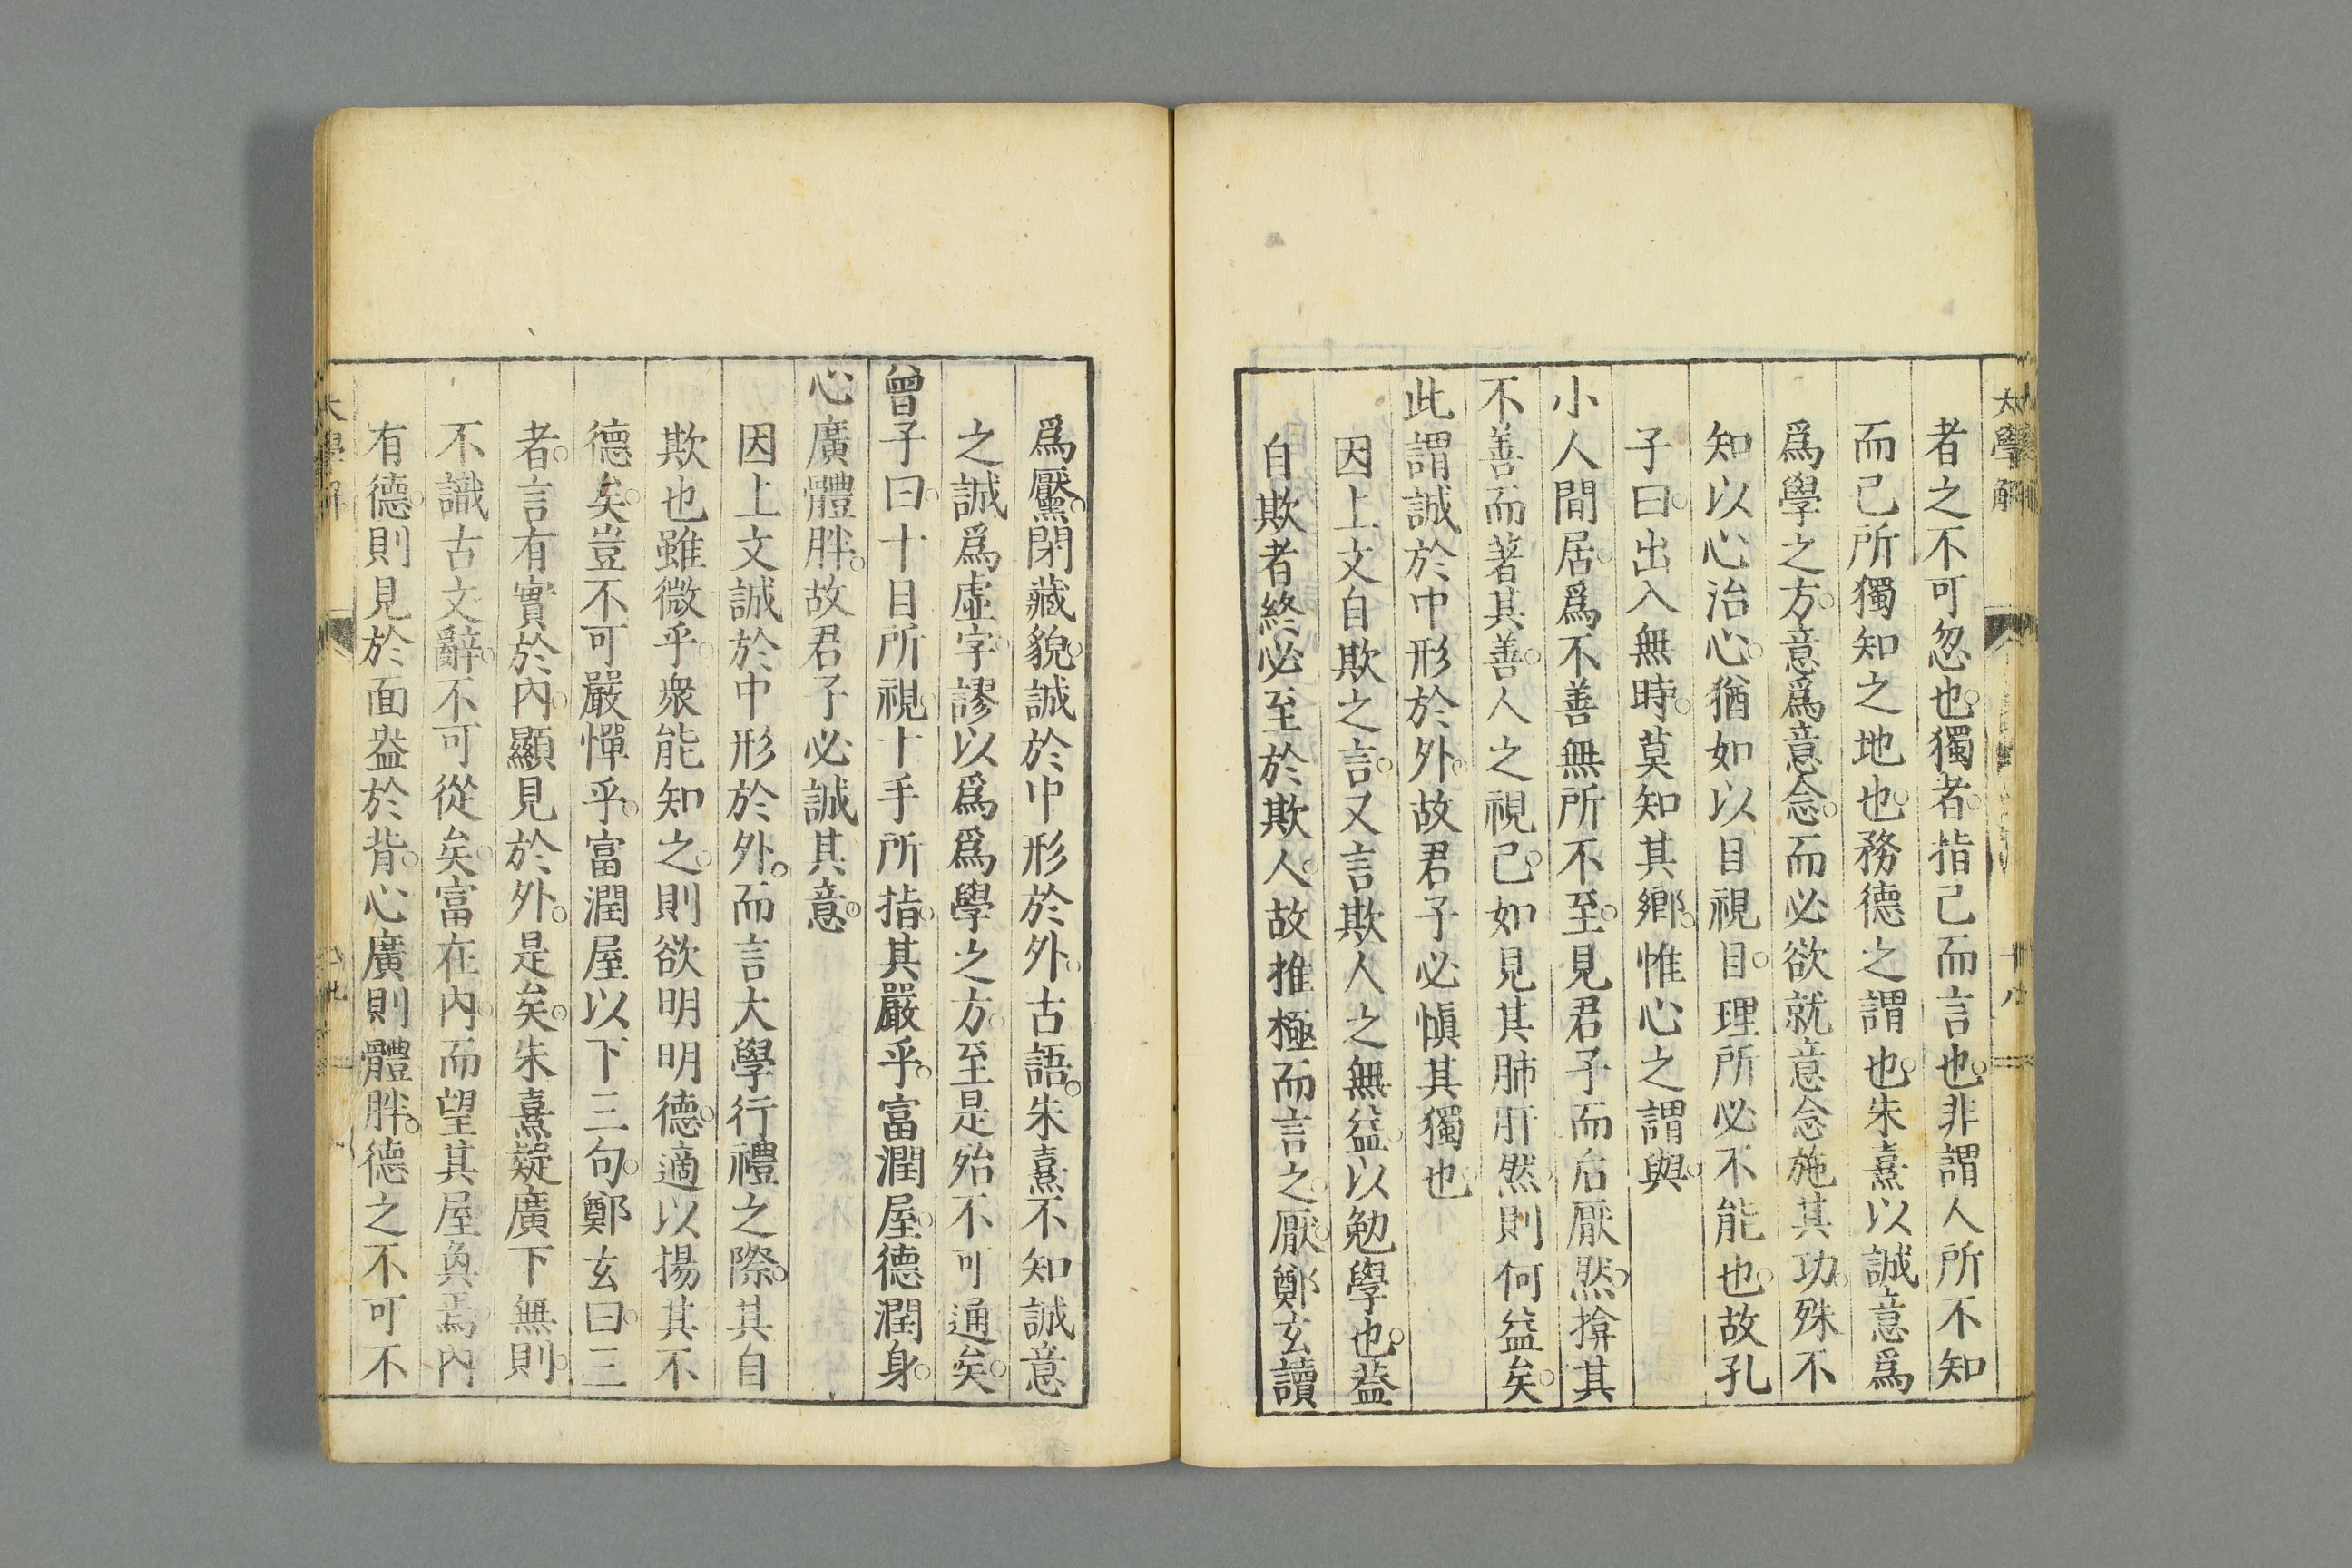 大學解
十八
者之不可忽也。獨者。指己而言也。非謂人所不知
而己所獨知之地也。務德之謂也。朱熹以誠意爲
爲學之方。意爲意念。而必欲就意念施其功。殊不
知以心治心。猶如以目視目。理所必不能也。故孔
子曰。出入無時。莫知其鄉。惟心之謂與。
小人閒居。爲不善無所不至。見君子而后厭然。揜其
不善而著其善。人之視己。如見其肺肝然。則何益矣。
此謂誠於中形於外。故君子必愼其獨也。
因上文自欺之言。又言欺人之無益。以勉學也。葢
自欺者終必至於欺人。故推極而言之。厭。鄭玄讀
爲黶。閉藏貌。誠於中形於外。古語。朱熹不知誠意
之誠爲虛字。謬以爲爲學之方。至是殆不可通矣。
曾子曰。十目所視。十手所指。其嚴乎。富潤屋。德潤身。
心廣體胖。故君子必誠其意。
因上文誠於中形於外。而言大學行禮之際。其自
欺也雖微乎。衆能知之。則欲明明德。適以揚其不
德矣。豈不可嚴憚乎。富潤屋以下三句。鄭玄曰。三
者。言有實於內。顯見於外。是矣。朱熹疑廣下無則。
不識古文辭。不可從矣。富在內。而望其屋奐焉。內
有德。則見於面盎於背。心廣則體胖。德之不可不
大學解